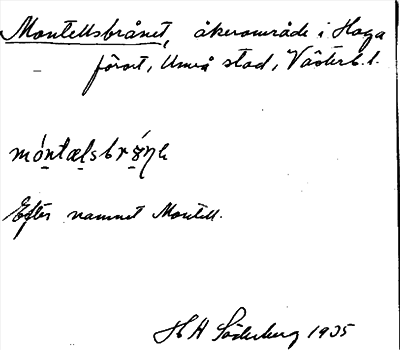 Montellsbrånet, åkerområde i Haga
förort, Umeå stad, Västerb. l.
móntælsbrǿŋe
Efter namnet Montell.
H A Söderberg 1935